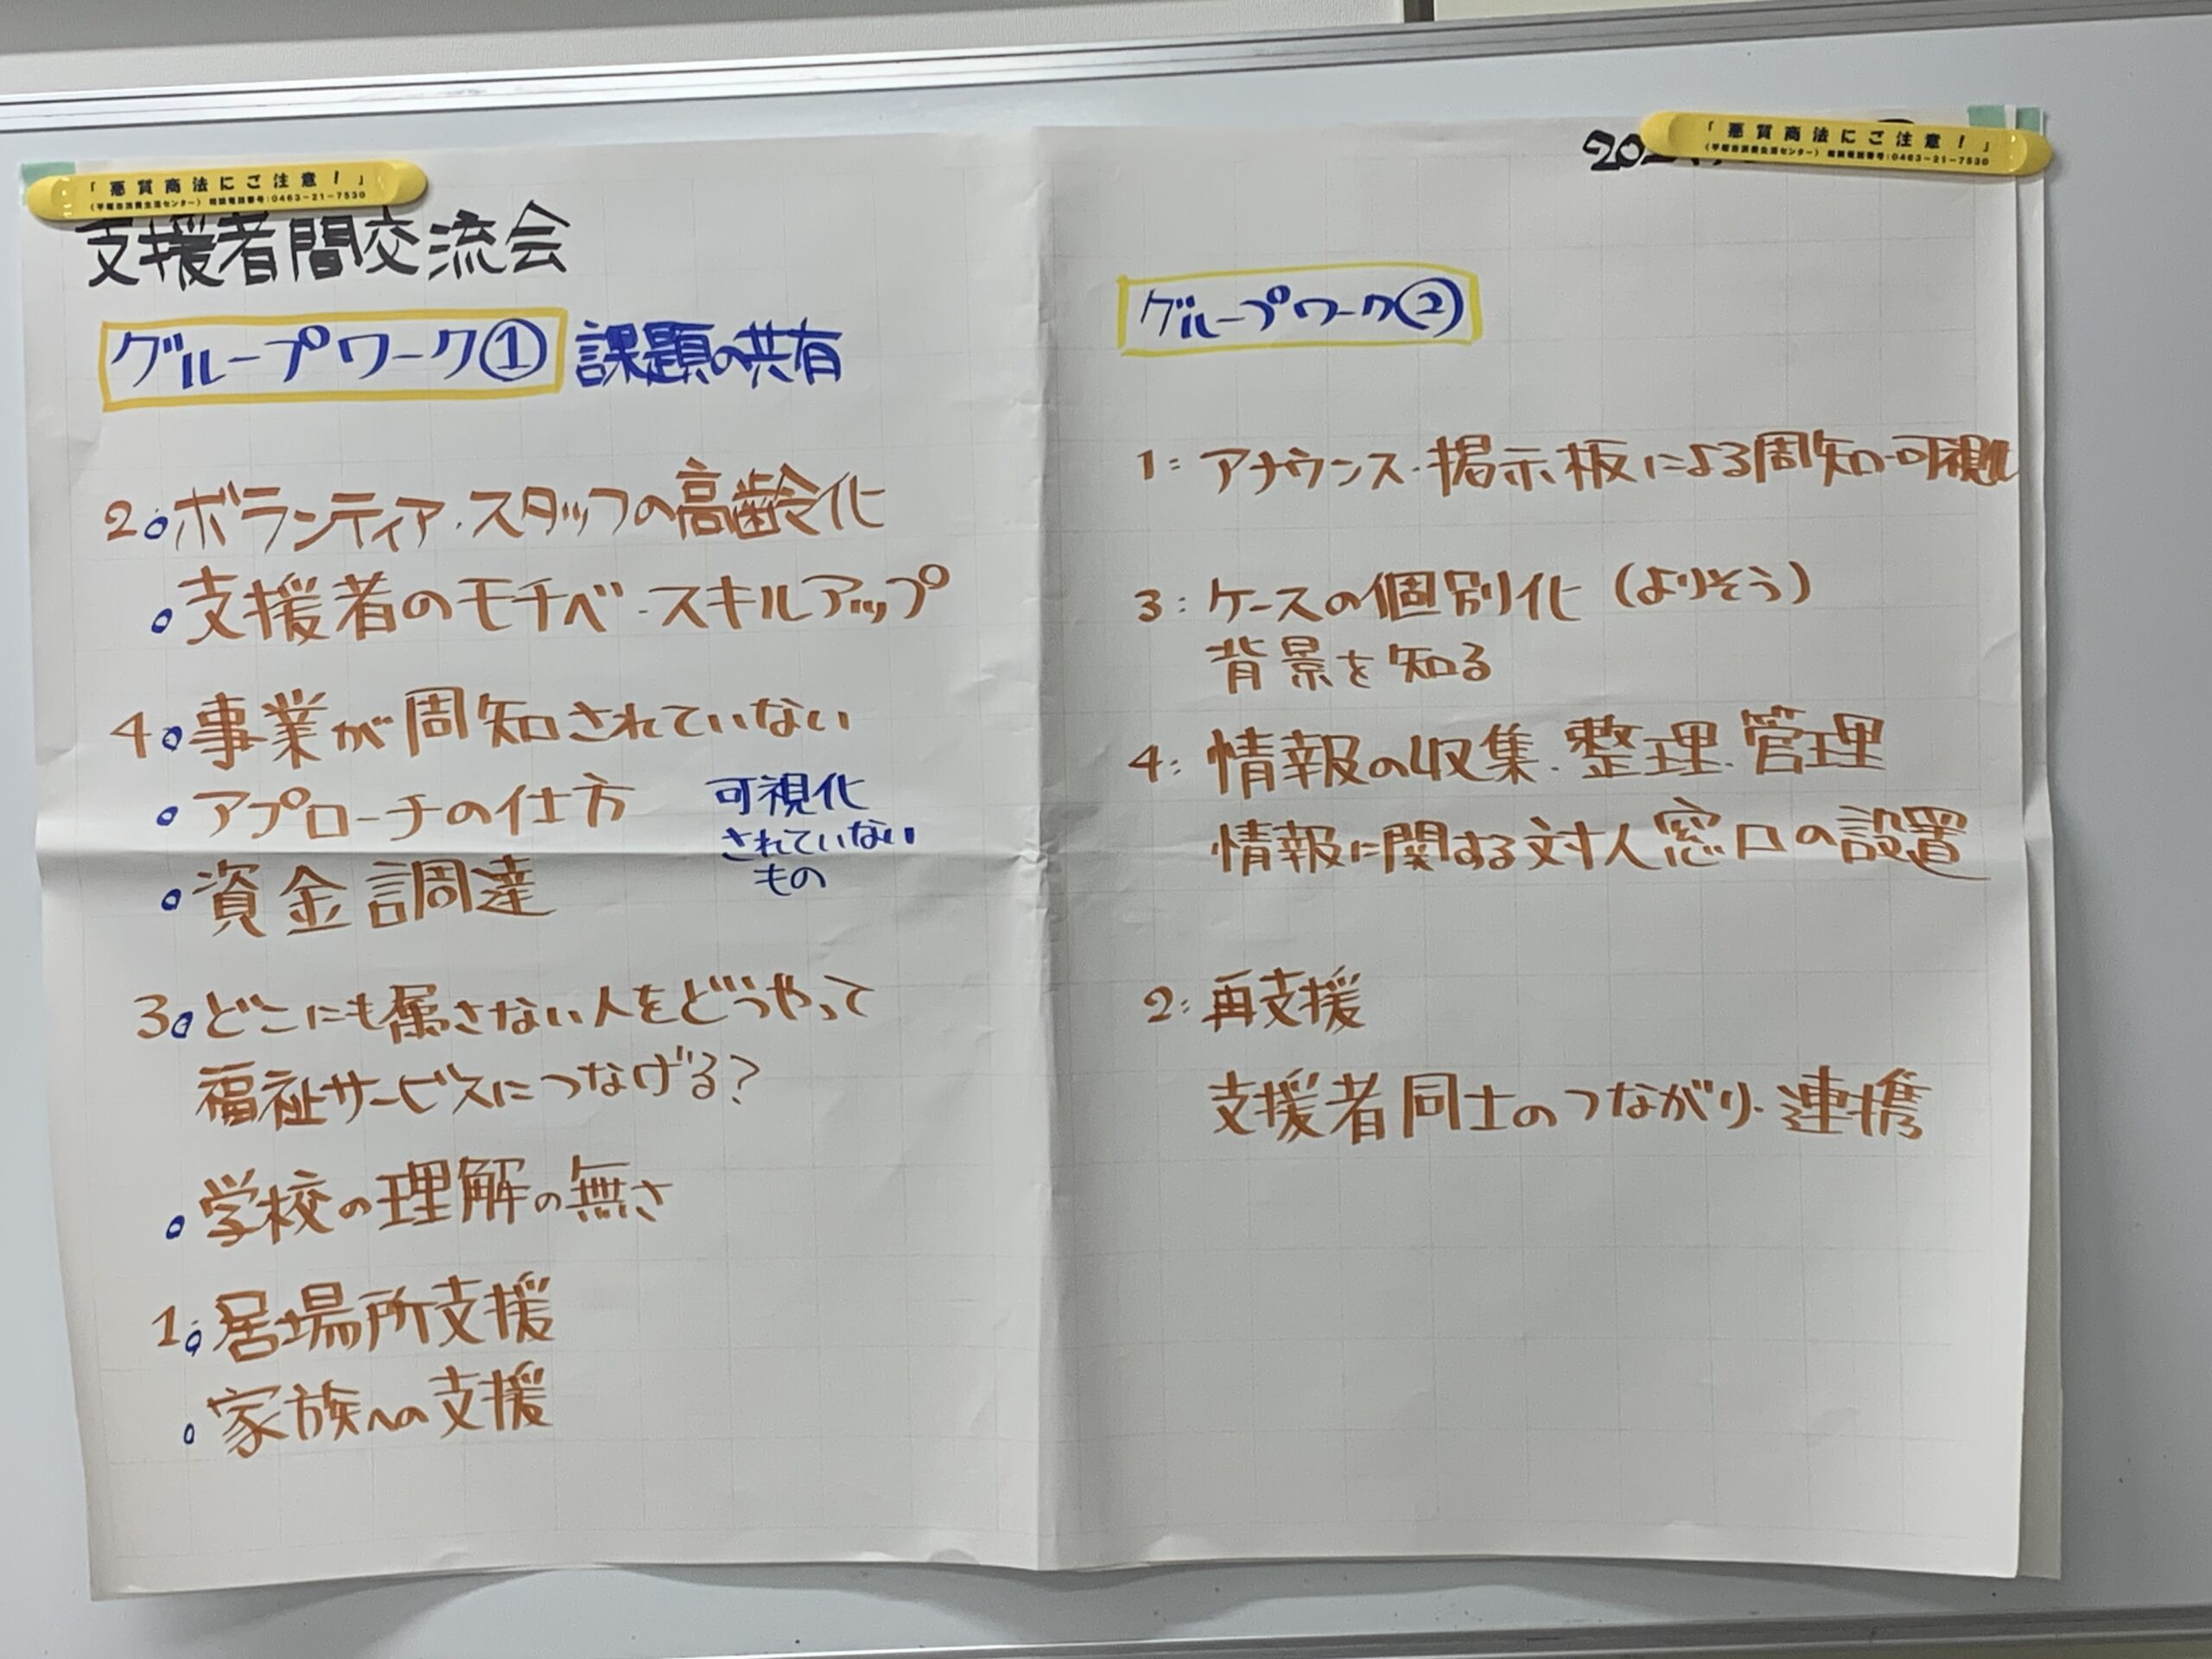 「悪質商法にご注意！」
（平塚市消費生活センター） 相談電話番号：0463-21-7530
支援者間交流会
グループワーク① 課題の共有
2 ボランティア・スタッフの高齢化
支援者のモチベ・スキルアップ
4 事業が周知されていない
アプローチの仕方
資金調達
可視化
されていない
もの
3 どこにも属さない人をどうやって
福祉サービスにつなげる？
学校の理解の無さ
1 居場所支援
家族への支援
「悪質商法にご注意！」
（平塚市消費生活センター） 相談電話番号：0463-21-7530
グループワーク②
1: アナウンス・掲示板による周知・可視化
3: ケースの個別化（よりそう）
背景を知る
4: 情報の収集・整理・管理
情報に関する対人窓口の設置
2: 再支援
支援者同士のつながり・連携